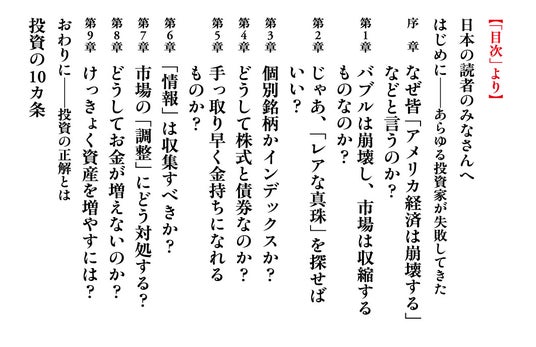 【「目次」より】
日本の読者のみなさんへ
はじめに――あらゆる投資家が失敗してきた
序　章　なぜ皆「アメリカ経済は崩壊する」
などと言うのか？
第1章　バブルは崩壊し、市場は収縮する
ものなのか？
第2章　じゃあ、「レアな真珠」を探せば
いい？
第3章　個別銘柄かインデックスか？
第4章　どうして株式と債券なのか？
第5章　手っ取り早く金持ちになれる
ものか？
第6章　「情報」は収集すべきか？
第7章　市場の「調整」にどう対処する？
第8章　どうしてお金が増えないのか？
第9章　けっきょく資産を増やすには？
おわりに――投資の正解とは
投資の10カ条